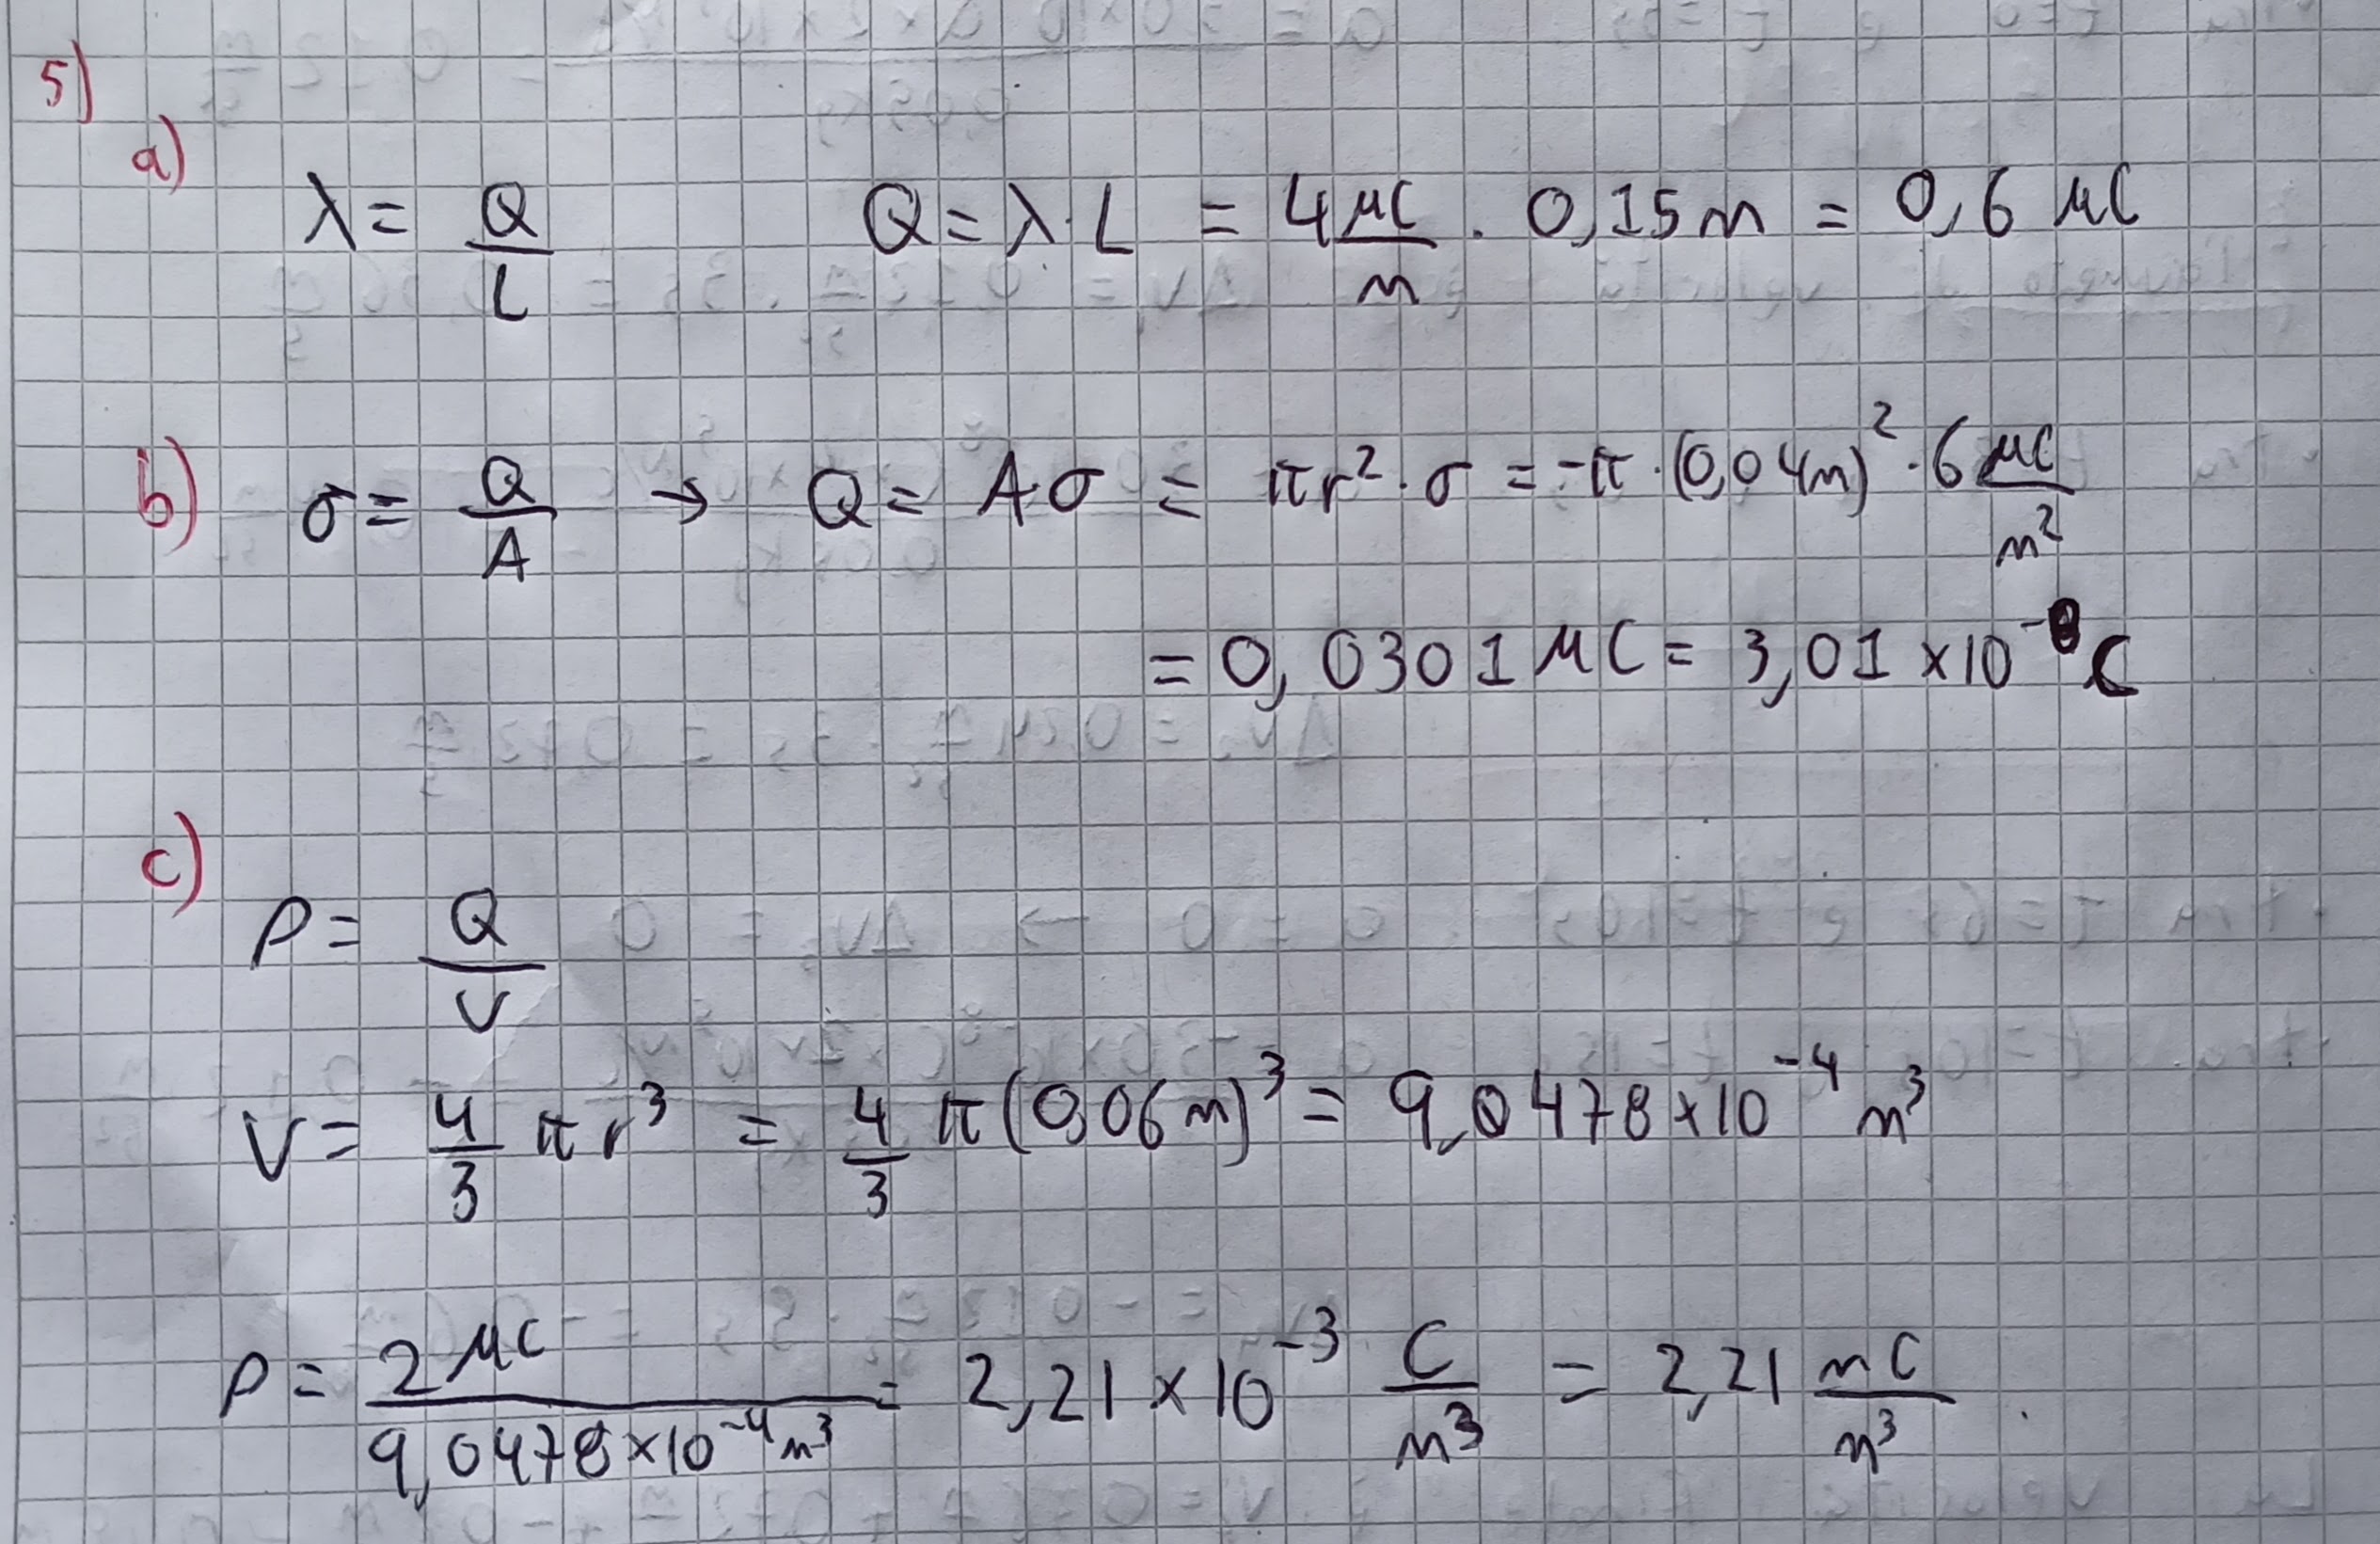 5)
a)
λ = Q/L    Q = λ·L = 4 μC/m · 0,15 m = 0,6 μC
b) σ = Q/A → Q = Aσ = πr²·σ = π·(0,04m)²·6 μC/m²
= 0,0301 μC = 3,01 ×10⁻⁸ C
c)
ρ = Q/V
V = 4/3 πr³ = 4/3 π(0,06 m)³ = 9,0478×10⁻⁴ m³
ρ = 2 μC / 9,0478×10⁻⁴ m³ = 2,21 ×10⁻³ C/m³ = 2,21 mC/m³.